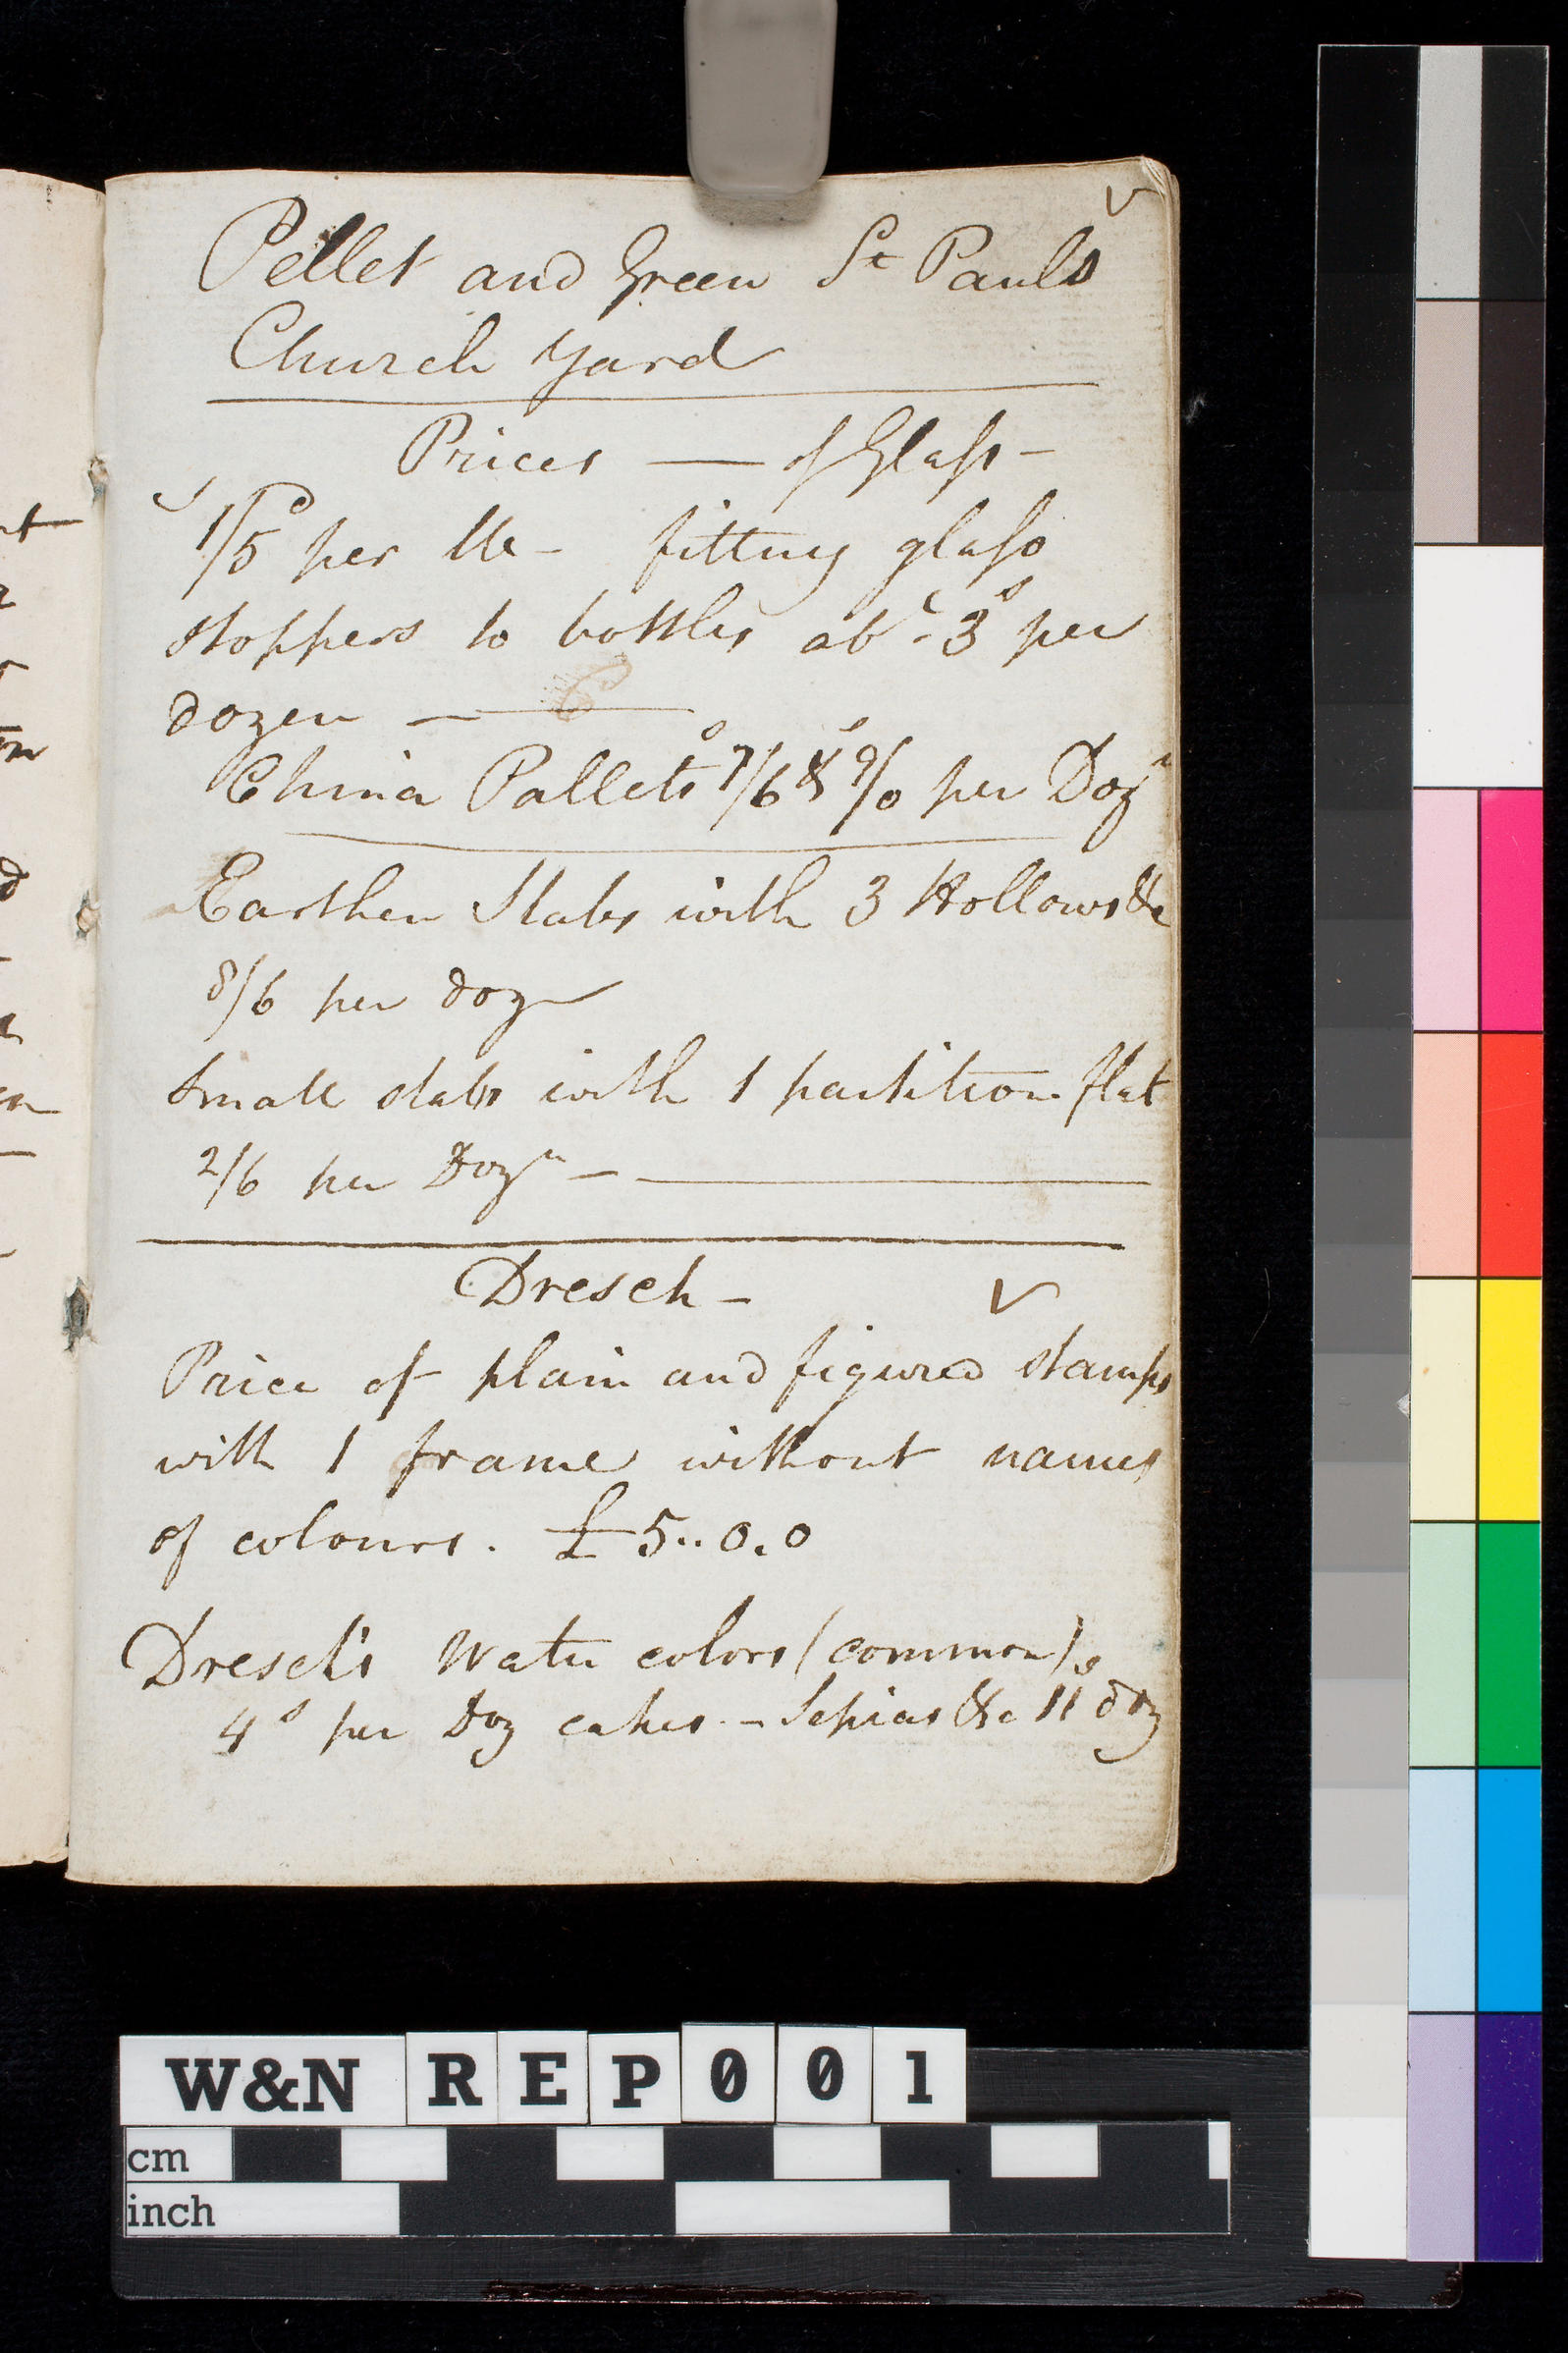 Pellet and Green St Pauls
Church Yard
Prices — of Glass -
1/5 per lb - fitting glass
stoppers to bottles abt. 3s per
dozen —
China Pallets 7/6 & 9/0 per Dozn
Earthen Slabs with 3 Hollows &c
8/6 per doz
Small slabs with 1 partition flat
2/6 per Dozn —
Dresch -
Price of plain and figured stamps
with 1 frame without names
of colours. £5..0.0
Dresch's Water colors (common)
4s per Doz cakes. - Sepias &c 11s doz
W&N REP001
cm
inch